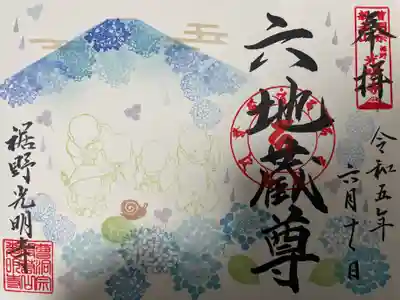 奉拝
令和五年
六月十八日
六地蔵尊
裾野光明寺